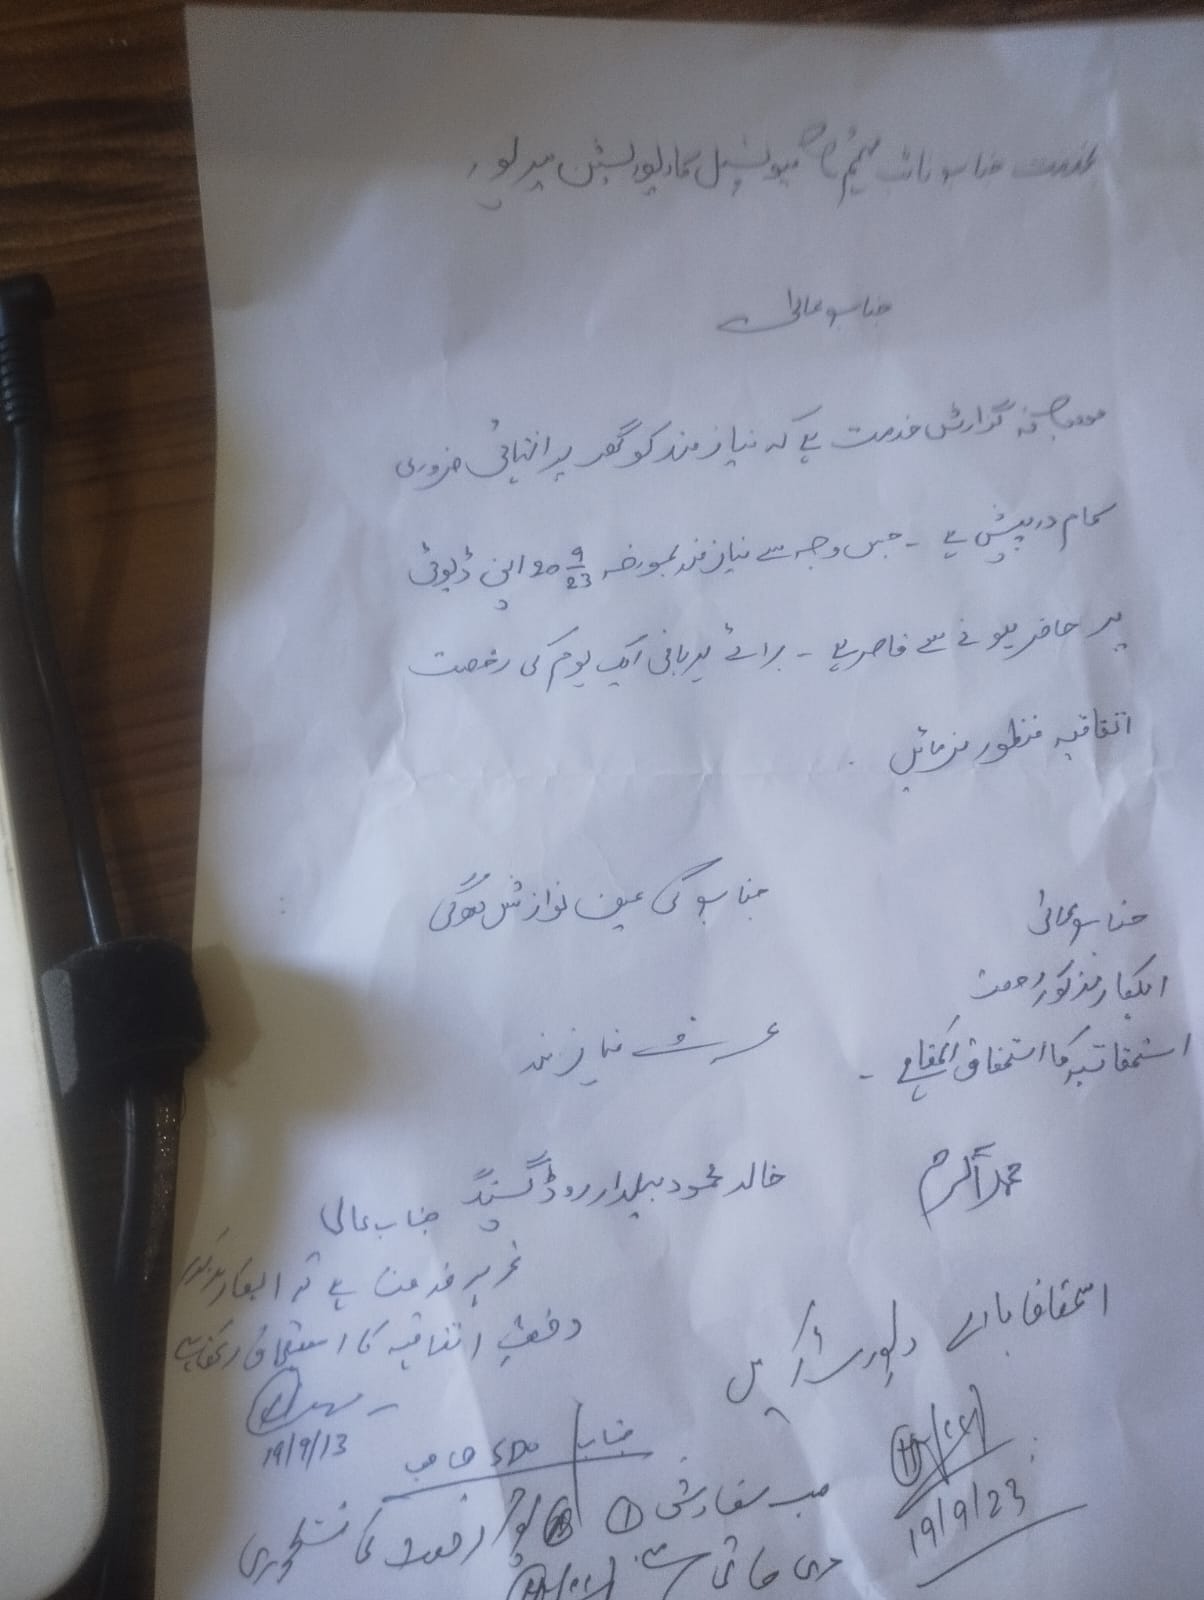 بخدمت جناب نائب مہتمم صاحب میونسپل کارپوریشن میرپور
جناب عالی
مودبانہ گزارش خدمت ہے کہ نیاز مند کو گھر پر انتہائی ضروری
کام درپیش ہے ۔ جس وجہ سے نیاز مند بمورخہ 20 9/23 اپنی ڈیوٹی
پر حاضر ہونے سے قاصر ہے ۔ برائے مہربانی ایک یوم کی رخصت
اتفاقیہ منظور فرمائیں
جناب کی عین نوازش ہوگی
عرضے نیاز مند
خالد محمود بیلدار روڈ گینگ
جناب عالی
اہلکار مذکور رخصت
استحقاقیہ کا استحقاق رکھتا ہے ۔
محمد اکرم
استحقاق بارے رپورٹ کریں
19/9/23
جناب عالی
تحریر خدمت ہے کہ اہلکار مذکور
رخصت اتفاقیہ کا استحقاق رکھتا ہے
19/9/13
جناب SDO صاحب
حسب سفارش رخصت کی منظوری
دی جاتی ہے